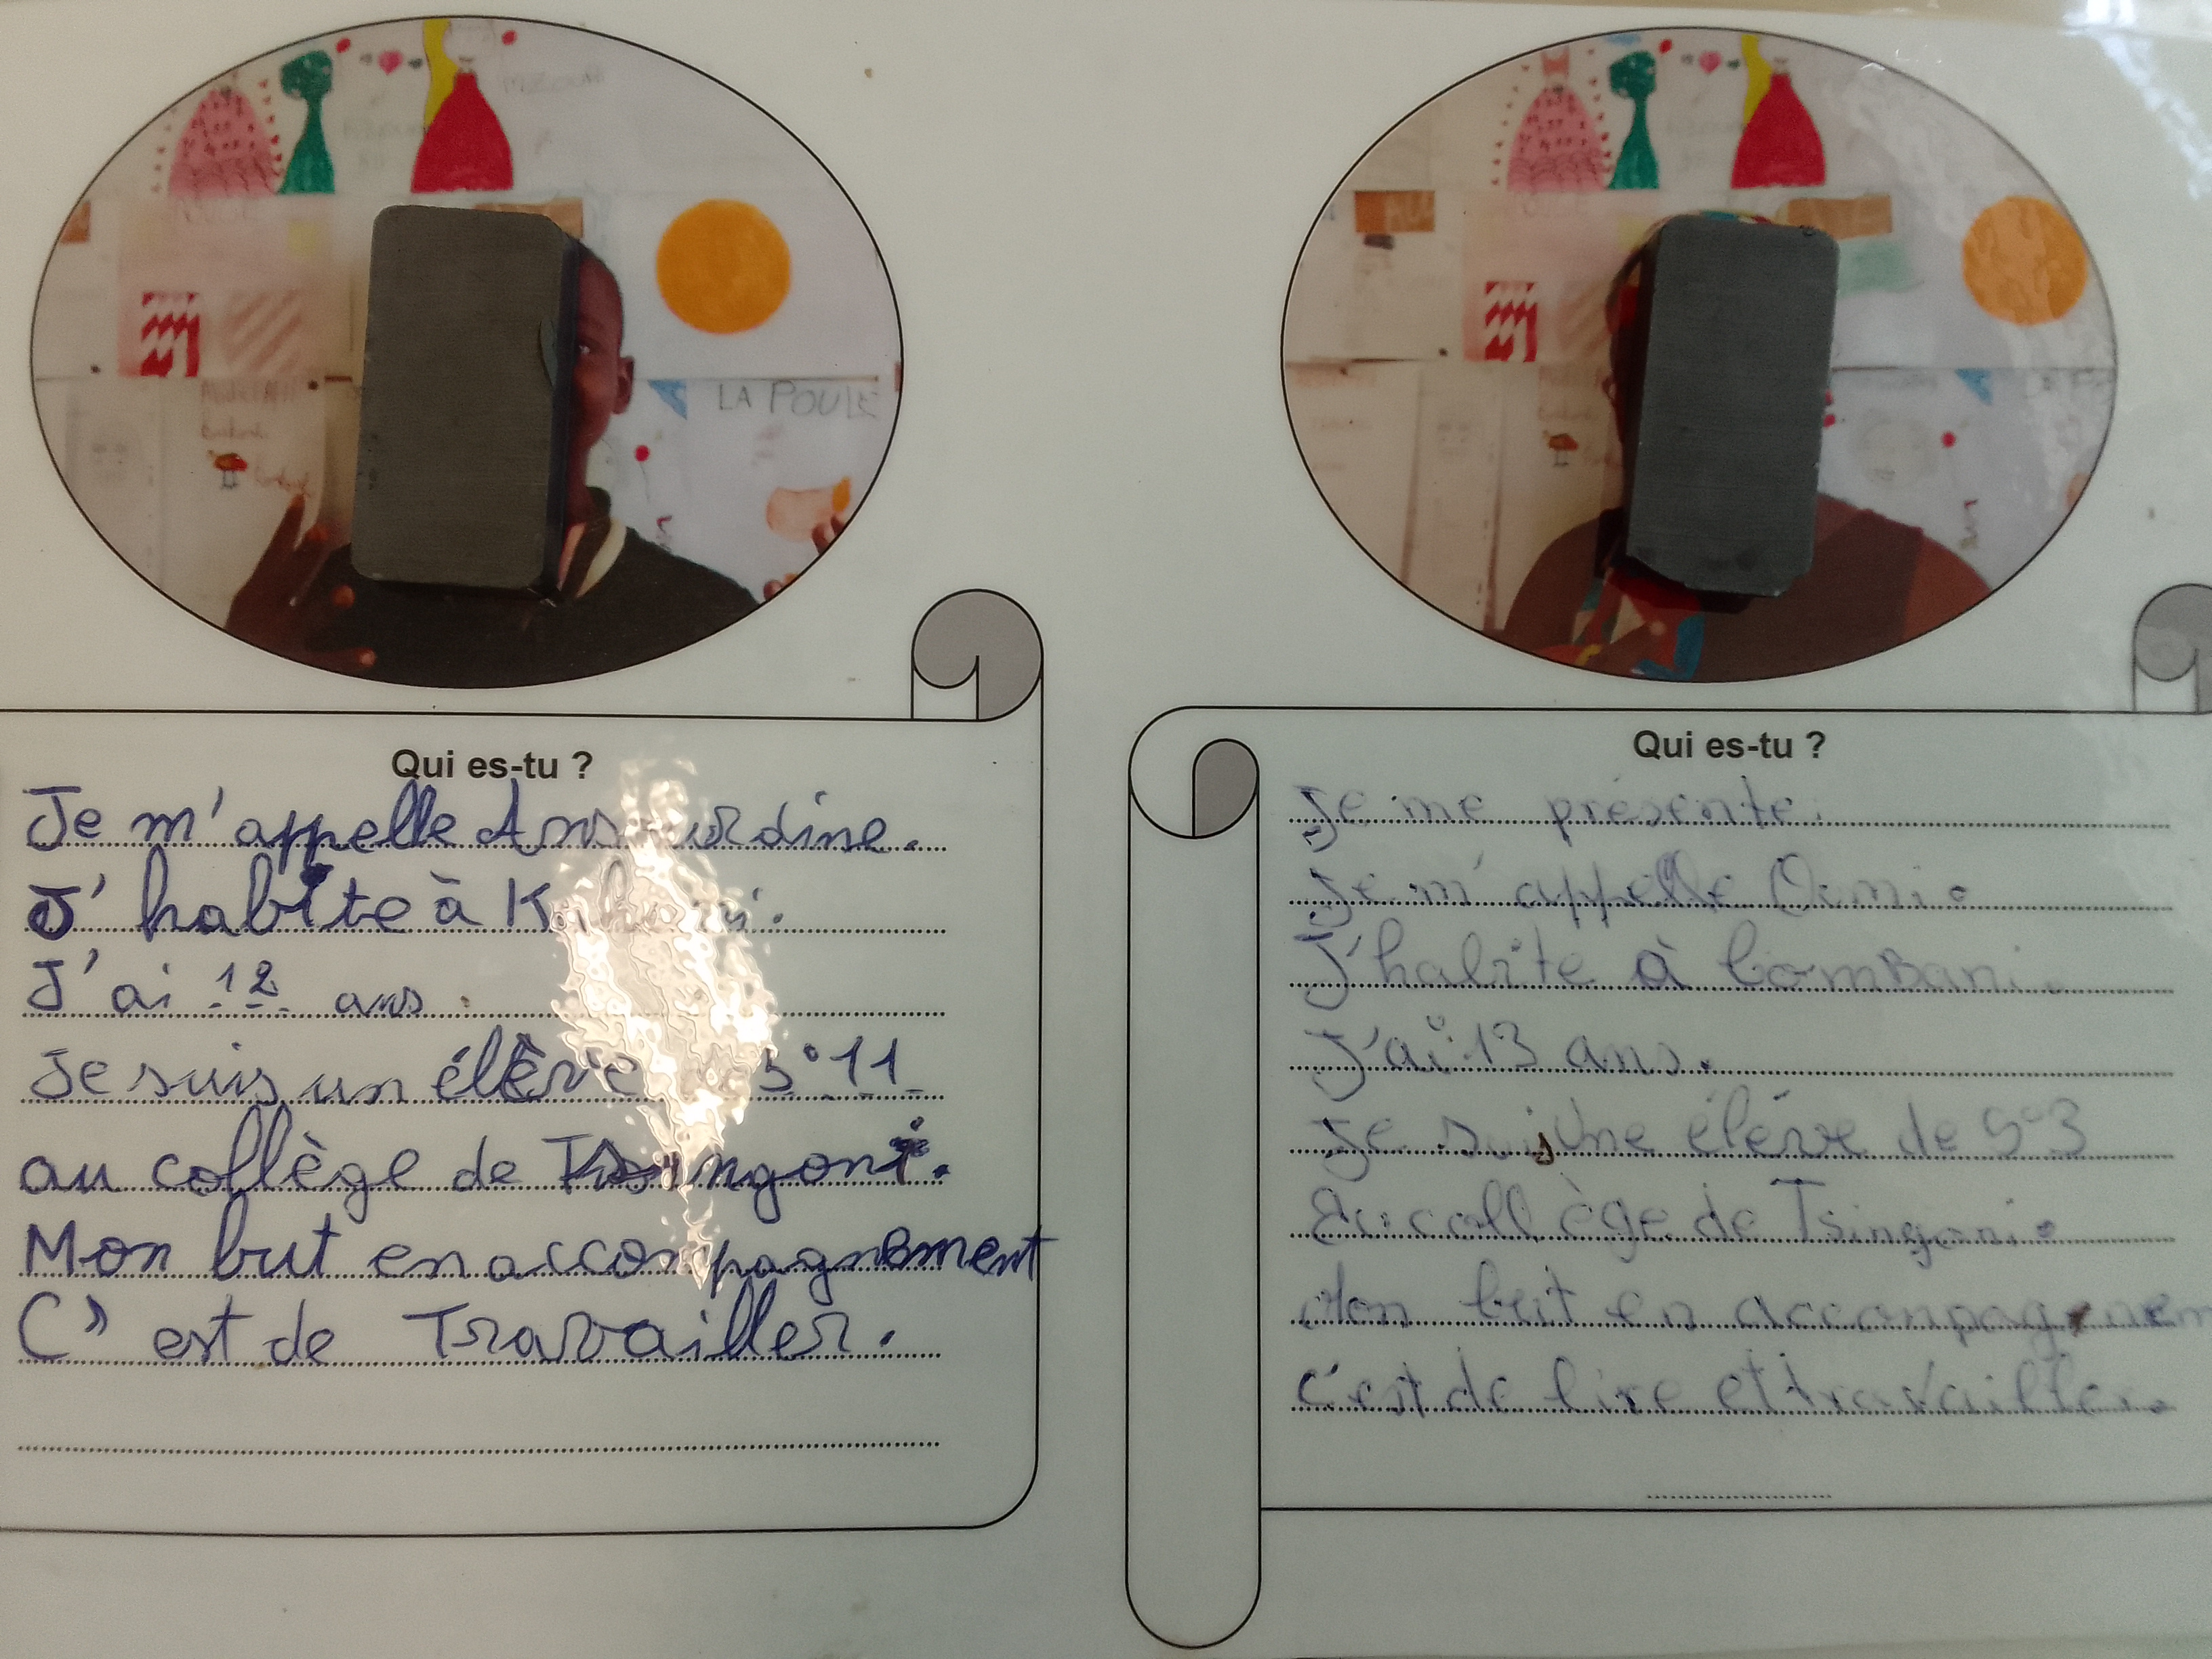 LA POULE
Qui es-tu ?
Je m'appelle
J'habite à
J'ai 12 ans.
Je suis un élève 5°11
au collège de Tsingoni.
Mon but en accompagnement
C'est de Travailler.
Qui es-tu ?
Je me présente.
Je m'appelle
J'habite à Combani.
J'ai 13 ans.
Je suis une élève de 5°3
Au collège de Tsingoni.
Mon but en accompagnem
c'est de lire et travailler.